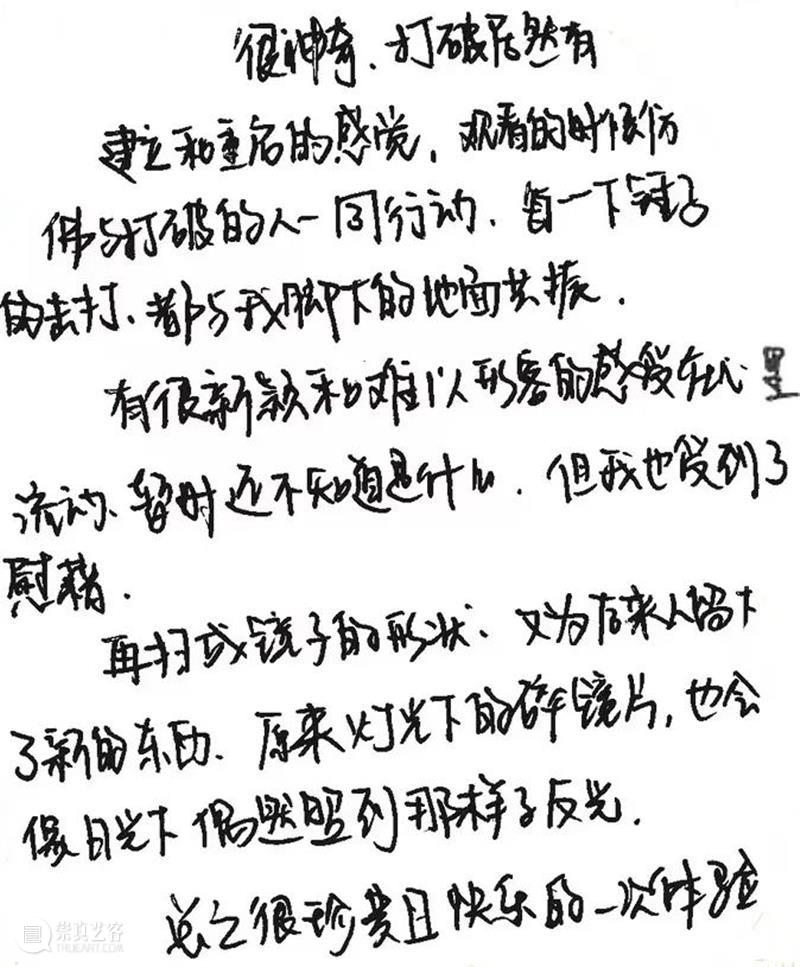 很神奇、打破居然有
建立和重启的感觉，观看的时候仿
佛与打破的人一同行动、每一下锤子
的击打、都与我脚下的地面共振．
有很新颖和难以形容的感受在
流动、暂时还不知道是什么．但我也受到了
慰藉．
再扫成镜子的形状、又为后来人留下
了新的东西、原来灯光下的碎镜片，也会
像日光下偶然照到那样子反光．
总之很珍贵且快乐的一次体验
崇真艺客
TRUEART.COM